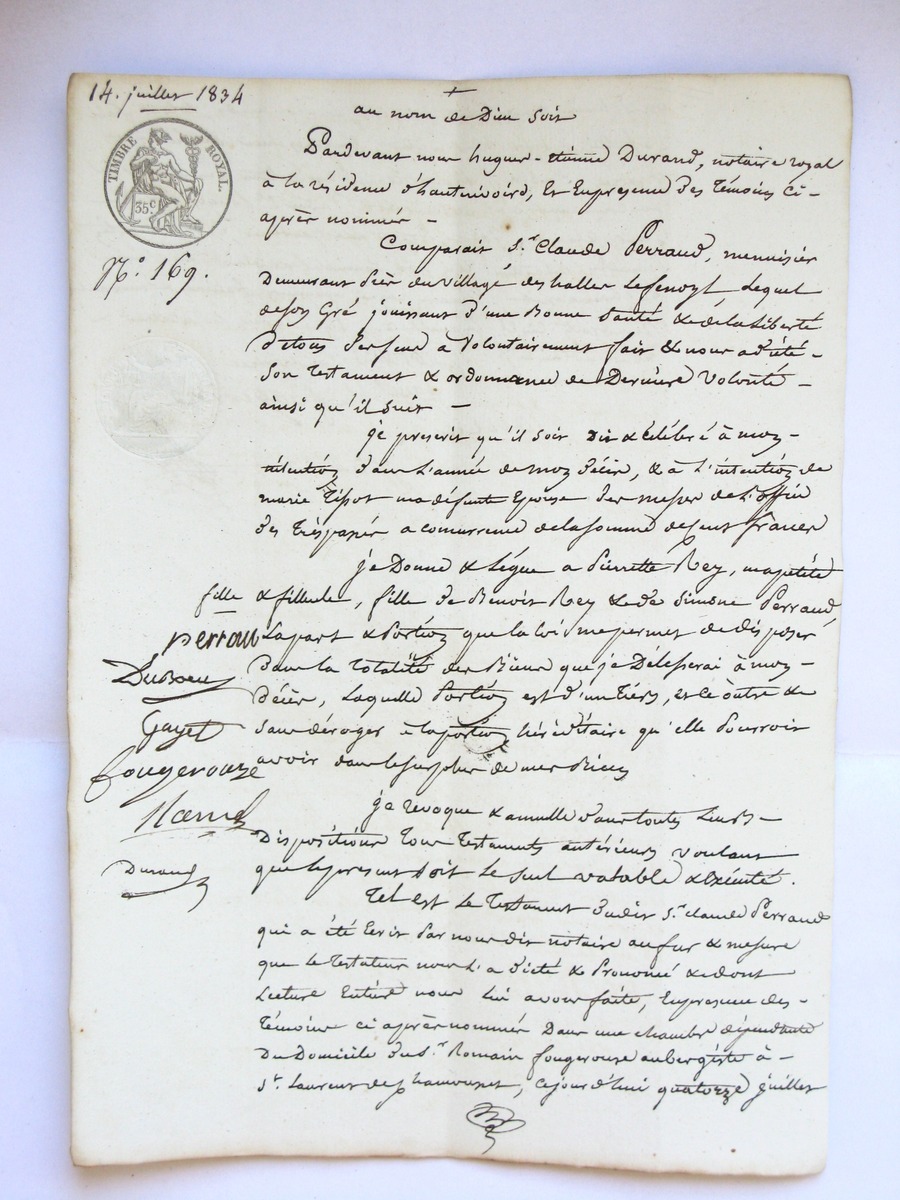 14. juillet 1834
au nom de Dieu soit
TIMBRE ROYAL.
35.c
N.o 169.
Pardevant nous hugues-étienne Durand, notaire royal
à la résidence d'hauterivoire, et En presence des témoins ci-
après nommés -
Comparait S.r Claude Perraud, menuisier
Demeurant Près du village des halles Lefenoyl Lequel
de son Gré jouissant d'une Bonne santé & de la Liberté
De tous ses sens a Volontairement fait & nous a dicté -
Son Testament & ordonnance de Dernière Volonté -
ainsi qu'il suit -
je prescrit qu'il soit dit & célébré à mon -
intention dans L'année de mon décès, & à L'intention de
marie Tissot ma défunte Epouse des messes de L'office
des trépassés a concurrence de la somme de cent francs
je Donne & Légue a Pierrette Rey, ma petite
fille & filleule, fille de Benoit Rey & de Simone Perraud,
La part & Portion que la loi me permet de disposer
Dans la totalité des Biens que je Délesserai à mon -
Décès, Laquelle Portion est d'un tiers, et ce outre &
Sans déroger à la portion héréditaire qu'elle Pourroit
avoir dans le surplus de mes Biens
je revoque & annulle dans toutes Leurs -
Dispositions tous testaments antérieurs voulant
que le present soit le seul valable & Exécuté.
Tel est Le Testament dudit S.r claude Perraud
qui a été Ecrit Par nous dit notaire au fur & mesure
que le Testateur nous L'a dicté & Prononcé & dont
Lecture Entière nous Lui avons faite, En presence des -
Témoins ci après nommés Dans une chambre dépendante
Du Domicile du S.r Romain fougerouse aubergiste à -
S.t Laurent de Chamousset, Cejourd'hui quatorze juillet
perrau
Duboeuf
Gayet
fougerouze
Durand